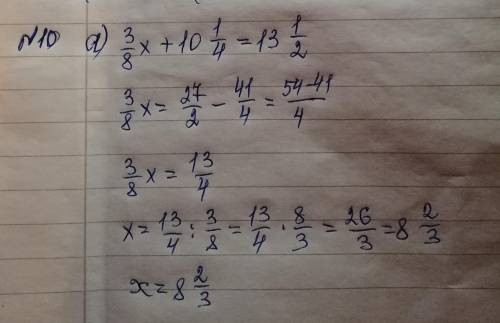 №10 а) 3/8 x + 10 1/4 = 13 1/2
3/8 x = 27/2 - 41/4 = 54-41/4
3/8 x = 13/4
x = 13/4 : 3/8 = 13/4 · 8/3 = 26/3 = 8 2/3
x = 8 2/3